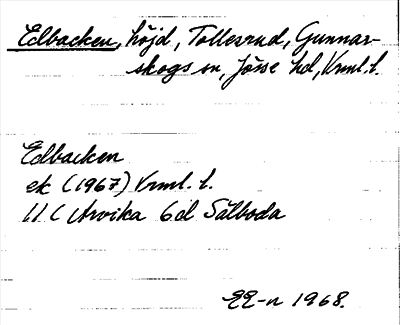 Edbacken, höjd, Tollesrud, Gunnar-
skogs sn, Jösse hd, Vrml. l.
Edbacken
ek (1967) Vrml. l.
11 C Arvika 6d Sälboda
EE-n 1968.